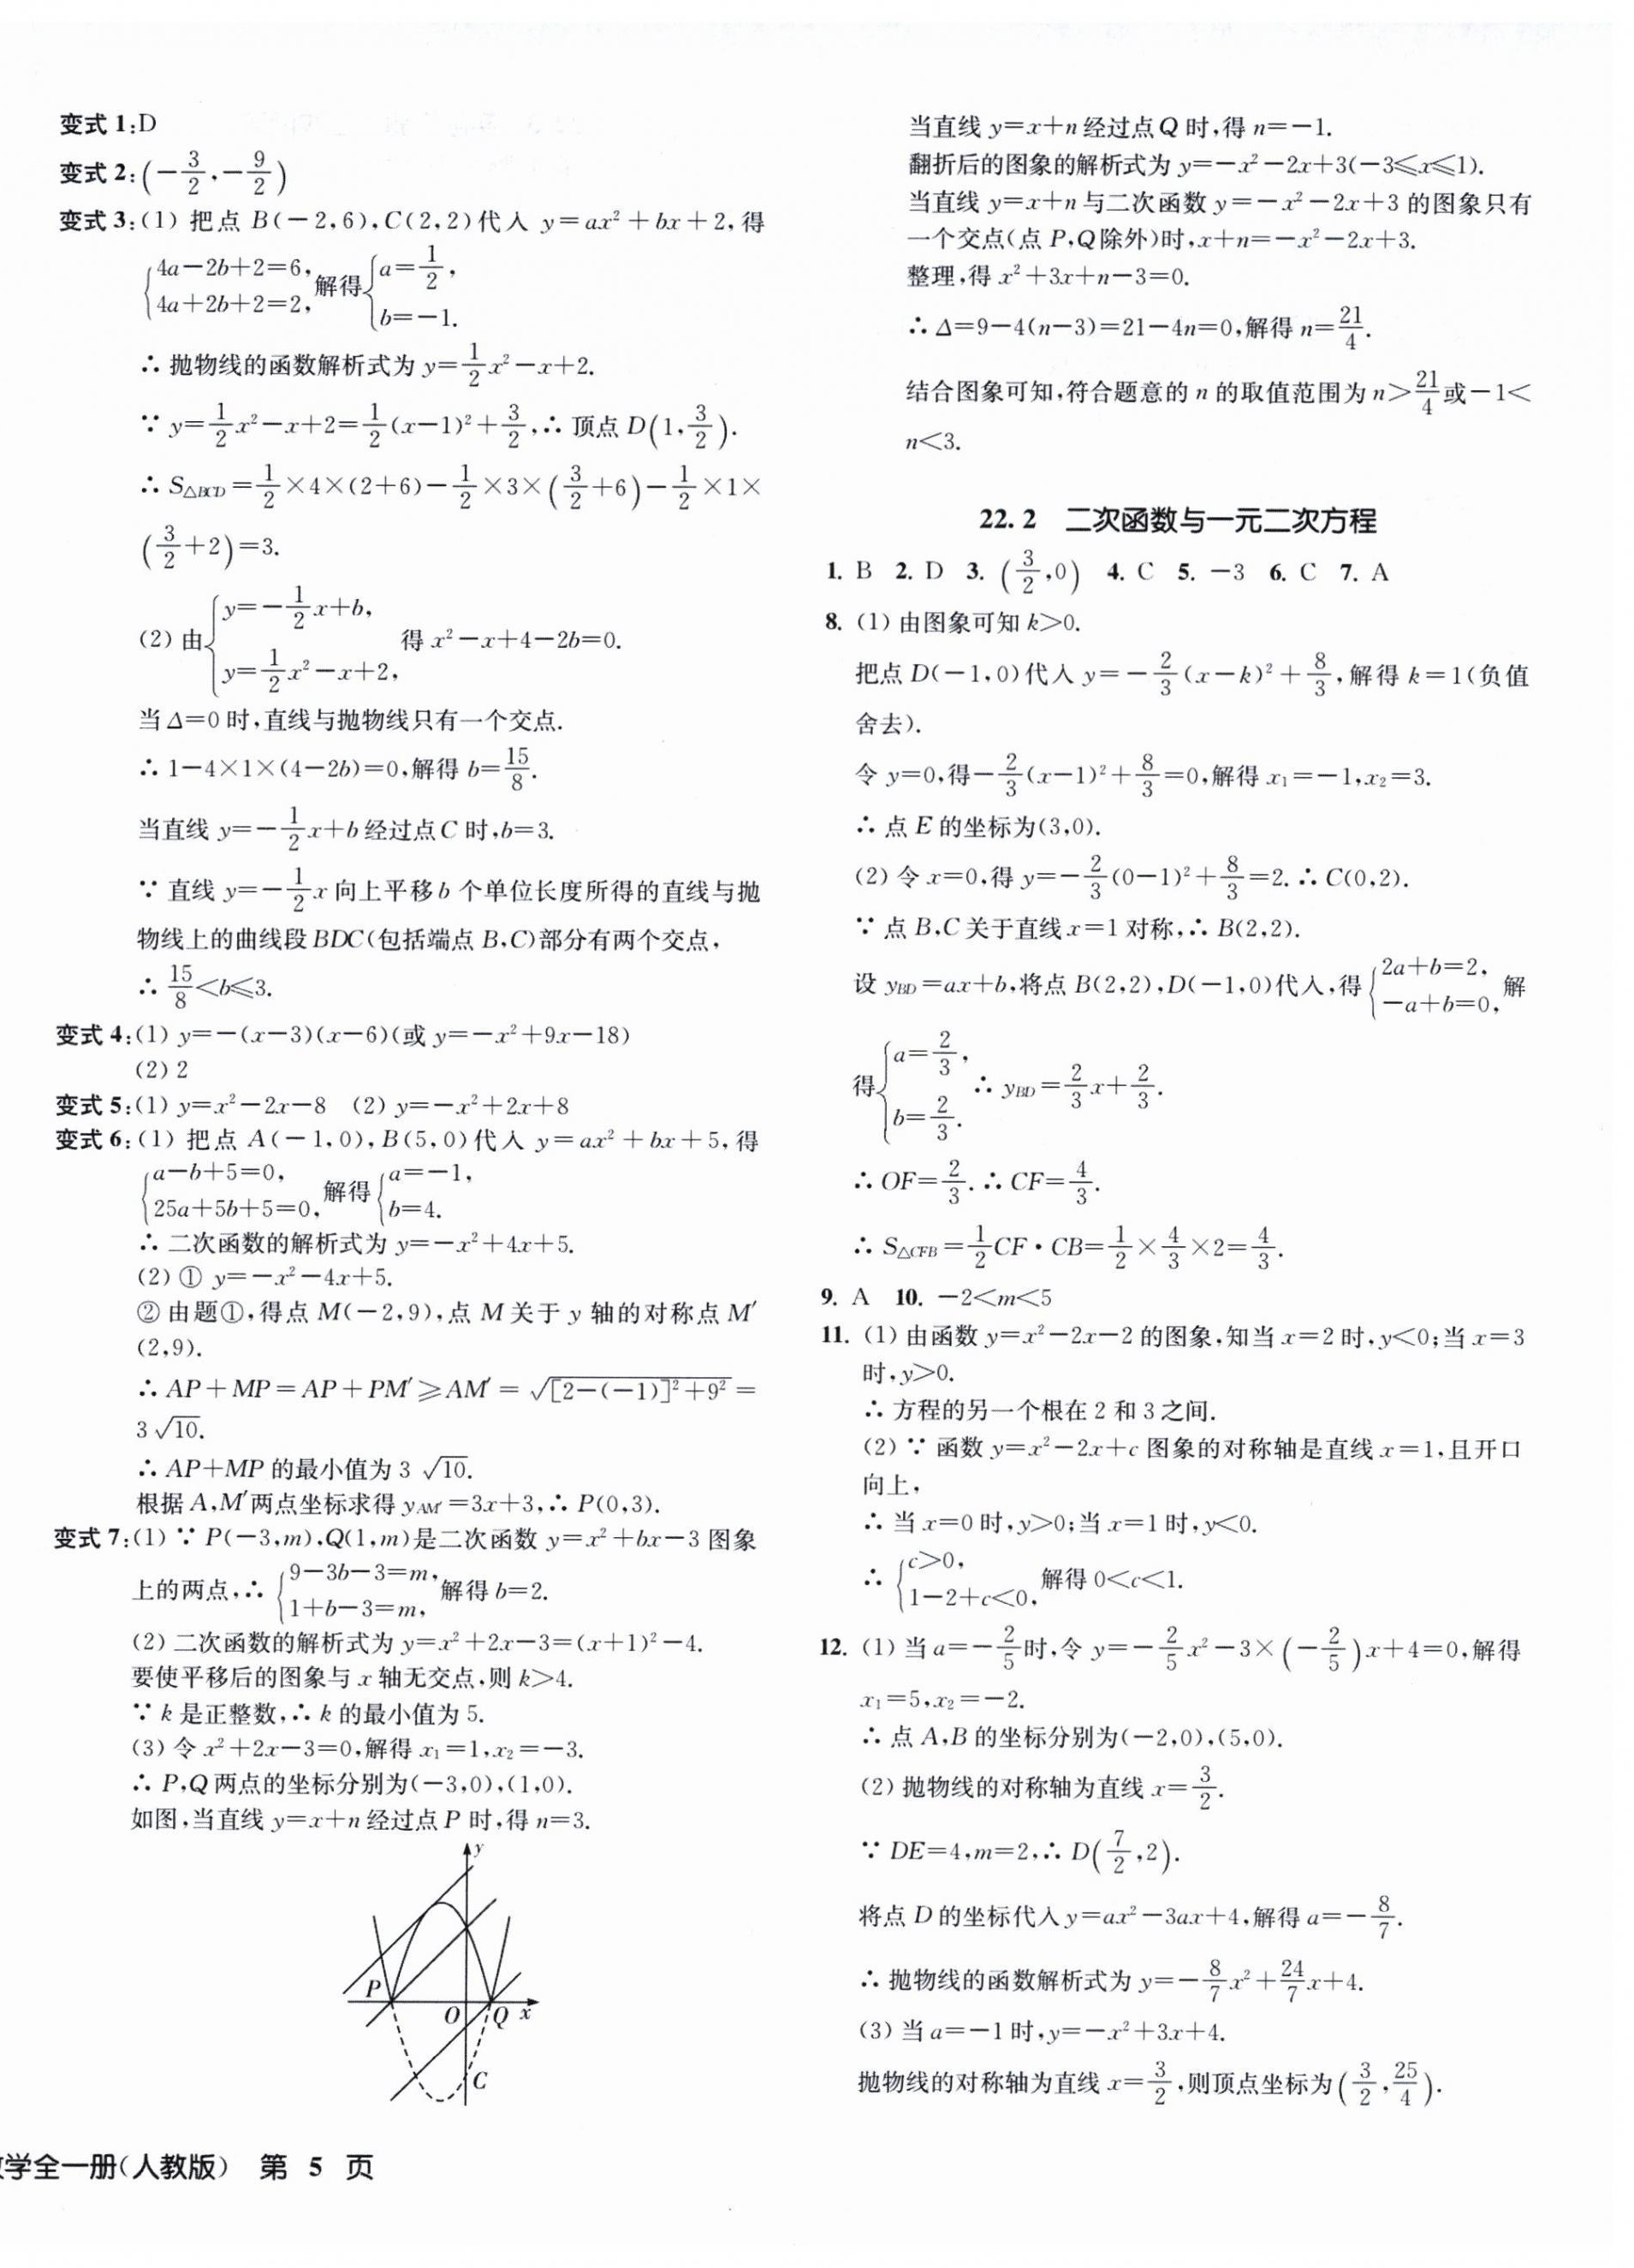 变式 1:D
变式 2:(−3/2,−9/2)
变式 3:(1) 把点 B(−2,6),C(2,2)代入 y=ax²+bx+2,得
{4a−2b+2=6, 4a+2b+2=2, 解得{a=1/2, b=−1.
∴ 抛物线的函数解析式为 y=1/2x²−x+2.
∵ y=1/2x²−x+2=1/2(x−1)²+3/2,∴ 顶点 D(1,3/2).
∴ S△BCD=1/2×4×(2+6)−1/2×3×(3/2+6)−1/2×1×
(3/2+2)=3.
(2) 由{y=−1/2x+b, y=1/2x²−x+2, 得 x²−x+4−2b=0.
当 Δ=0 时,直线与抛物线只有一个交点.
∴ 1−4×1×(4−2b)=0,解得 b=15/8.
当直线 y=−1/2x+b 经过点 C 时,b=3.
∵ 直线 y=−1/2x 向上平移 b 个单位长度所得的直线与抛
物线上的曲线段 BDC(包括端点 B,C)部分有两个交点,
∴ 15/8<b≤3.
变式 4:(1) y=−(x−3)(x−6)(或 y=−x²+9x−18)
(2) 2
变式 5:(1) y=x²−2x−8 (2) y=−x²+2x+8
变式 6:(1) 把点 A(−1,0),B(5,0)代入 y=ax²+bx+5,得
{a−b+5=0, 25a+5b+5=0, 解得{a=−1, b=4.
∴ 二次函数的解析式为 y=−x²+4x+5.
(2) ① y=−x²−4x+5.
② 由题①,得点 M(−2,9),点 M 关于 y 轴的对称点 M′
(2,9).
∴ AP+MP=AP+PM′≥AM′=√([2−(−1)]²+9²)=
3√10.
∴ AP+MP 的最小值为 3√10.
根据 A,M′两点坐标求得 yAM′=3x+3,∴ P(0,3).
变式 7:(1) ∵ P(−3,m),Q(1,m)是二次函数 y=x²+bx−3 图象
上的两点,∴ {9−3b−3=m, 1+b−3=m, 解得 b=2.
(2) 二次函数的解析式为 y=x²+2x−3=(x+1)²−4.
要使平移后的图象与 x 轴无交点,则 k>4.
∵ k 是正整数,∴ k 的最小值为 5.
(3) 令 x²+2x−3=0,解得 x₁=1,x₂=−3.
∴ P,Q 两点的坐标分别为(−3,0),(1,0).
如图,当直线 y=x+n 经过点 P 时,得 n=3.
y
P
O
Q
x
C
数学全一册(人教版) 第 5 页
当直线 y=x+n 经过点 Q 时,得 n=−1.
翻折后的图象的解析式为 y=−x²−2x+3(−3≤x≤1).
当直线 y=x+n 与二次函数 y=−x²−2x+3 的图象只有
一个交点(点 P,Q 除外)时,x+n=−x²−2x+3.
整理,得 x²+3x+n−3=0.
∴ Δ=9−4(n−3)=21−4n=0,解得 n=21/4.
结合图象可知,符合题意的 n 的取值范围为 n>21/4或−1<
n<3.
22.2 二次函数与一元二次方程
1. B 2. D 3. (3/2,0) 4. C 5. −3 6. C 7. A
8. (1) 由图象可知 k>0.
把点 D(−1,0)代入 y=−2/3(x−k)²+8/3,解得 k=1(负值
舍去).
令 y=0,得−2/3(x−1)²+8/3=0,解得 x₁=−1,x₂=3.
∴ 点 E 的坐标为(3,0).
(2) 令 x=0,得 y=−2/3(0−1)²+8/3=2.∴ C(0,2).
∵ 点 B,C 关于直线 x=1 对称,∴ B(2,2).
设 yBD=ax+b,将点 B(2,2),D(−1,0)代入,得{2a+b=2, −a+b=0, 解
得{a=2/3, b=2/3. ∴ yBD=2/3x+2/3.
∴ OF=2/3.∴ CF=4/3.
∴ S△CFB=1/2CF·CB=1/2×4/3×2=4/3.
9. A 10. −2<m<5
11. (1) 由函数 y=x²−2x−2 的图象,知当 x=2 时,y<0;当 x=3
时,y>0.
∴ 方程的另一个根在 2 和 3 之间.
(2) ∵ 函数 y=x²−2x+c 图象的对称轴是直线 x=1,且开口
向上,
∴ 当 x=0 时,y>0;当 x=1 时,y<0.
∴ {c>0, 1−2+c<0, 解得 0<c<1.
12. (1) 当 a=−2/5时,令 y=−2/5x²−3×(−2/5)x+4=0,解得
x₁=5,x₂=−2.
∴ 点 A,B 的坐标分别为(−2,0),(5,0).
(2) 抛物线的对称轴为直线 x=3/2.
∵ DE=4,m=2,∴ D(7/2,2).
将点 D 的坐标代入 y=ax²−3ax+4,解得 a=−8/7.
∴ 抛物线的函数解析式为 y=−8/7x²+24/7x+4.
(3) 当 a=−1 时,y=−x²+3x+4.
抛物线的对称轴为直线 x=3/2,则顶点坐标为(3/2,25/4).